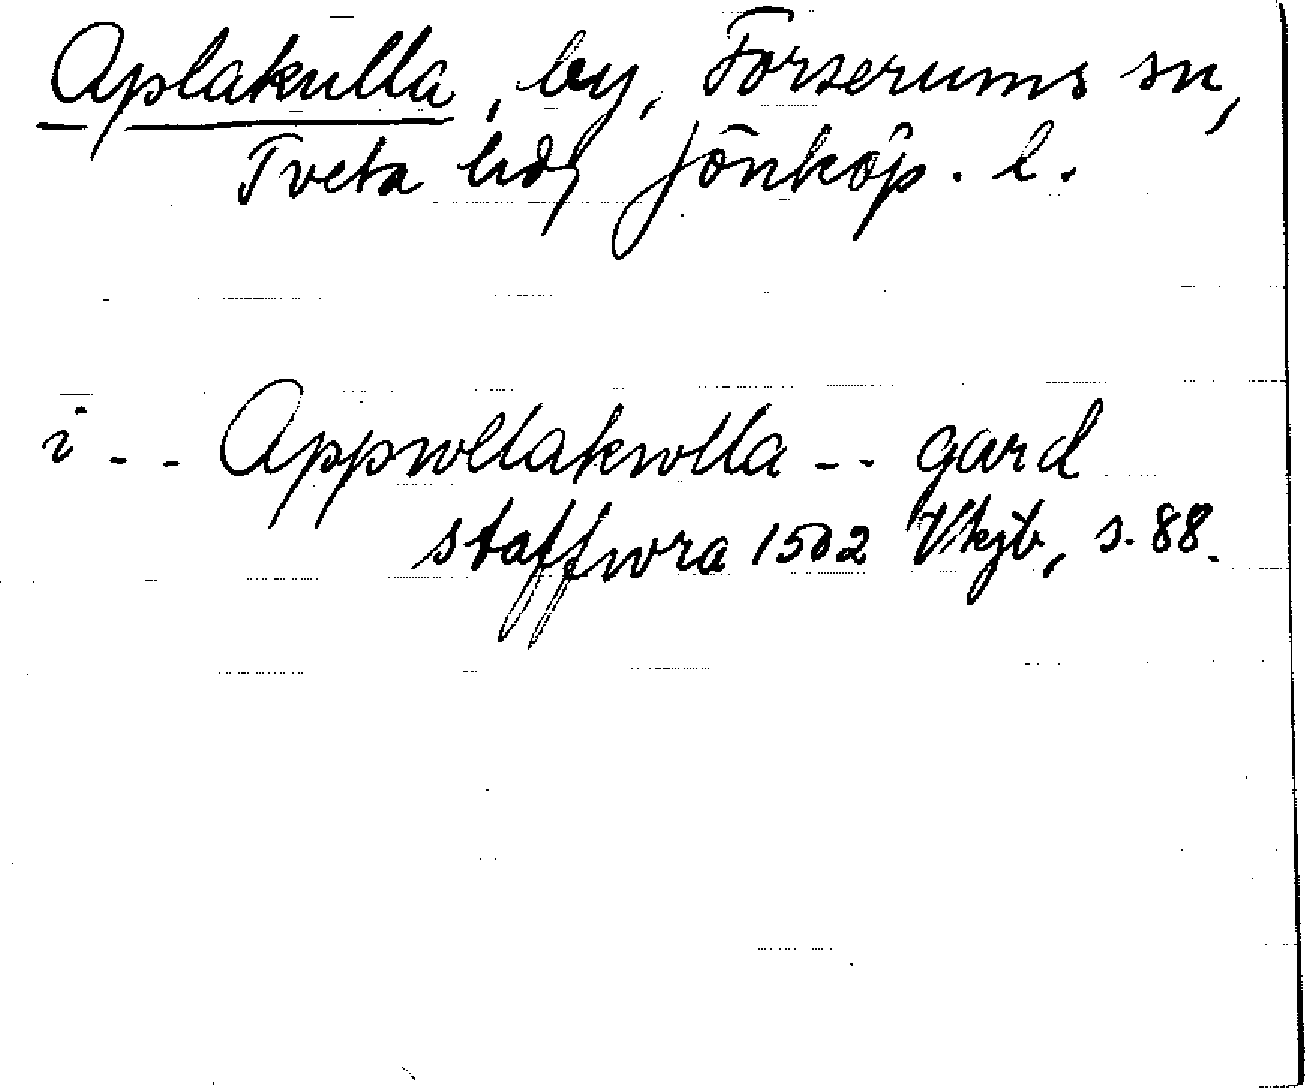 Aplakulla, by, Forserums sn,
Tveta hd, Jönköp. l.
i -- Appwllakwlla -- gard
staffwra 1502 Vkjb, s. 88.